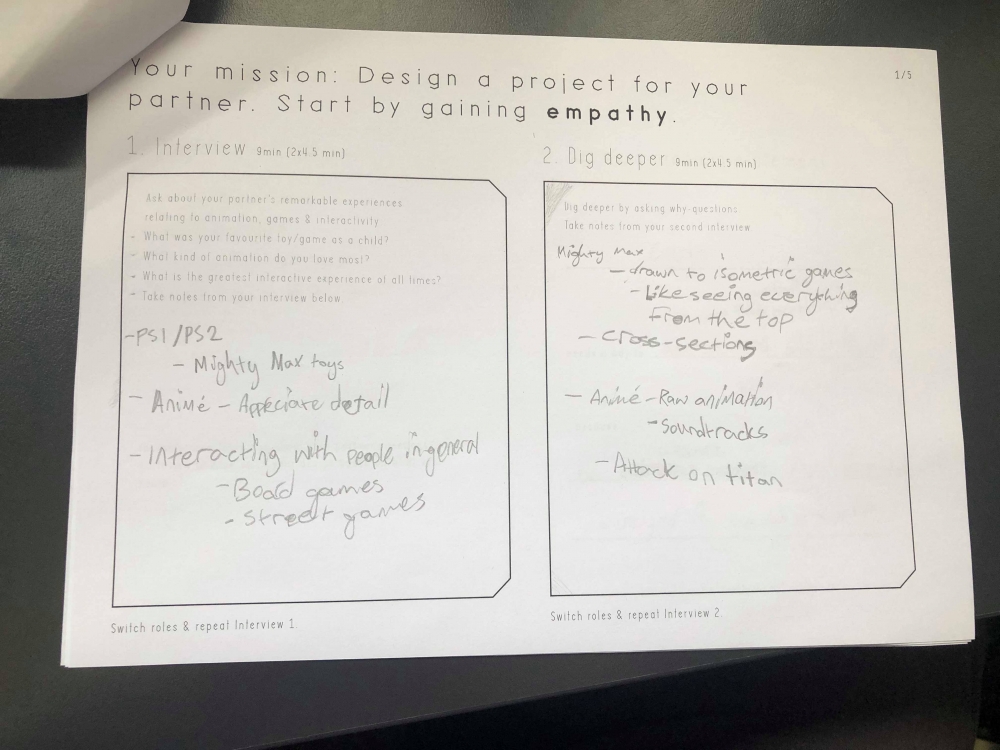 Your mission: Design a project for your
partner. Start by gaining empathy.
1/5
1. Interview 9min (2x4.5 min)
Ask about your partner's remarkable experiences
relating to animation, games & interactivity
- What was your favourite toy/game as a child?
- What kind of animation do you love most?
- What is the greatest interactive experience of all times?
- Take notes from your interview below.
-PS1/PS2
- Mighty Max toys
- Animé - Appreciate detail
- Interacting with people in general
- Board games
- Street games
Switch roles & repeat Interview 1.
2. Dig deeper 9min (2x4.5 min)
Dig deeper by asking why-questions.
Take notes from your second interview.
Mighty Max
- drawn to isometric games
- Like seeing everything
From the top
- cross-sections
- Animé - Raw animation
- Soundtracks
- Attack on titan
Switch roles & repeat Interview 2.